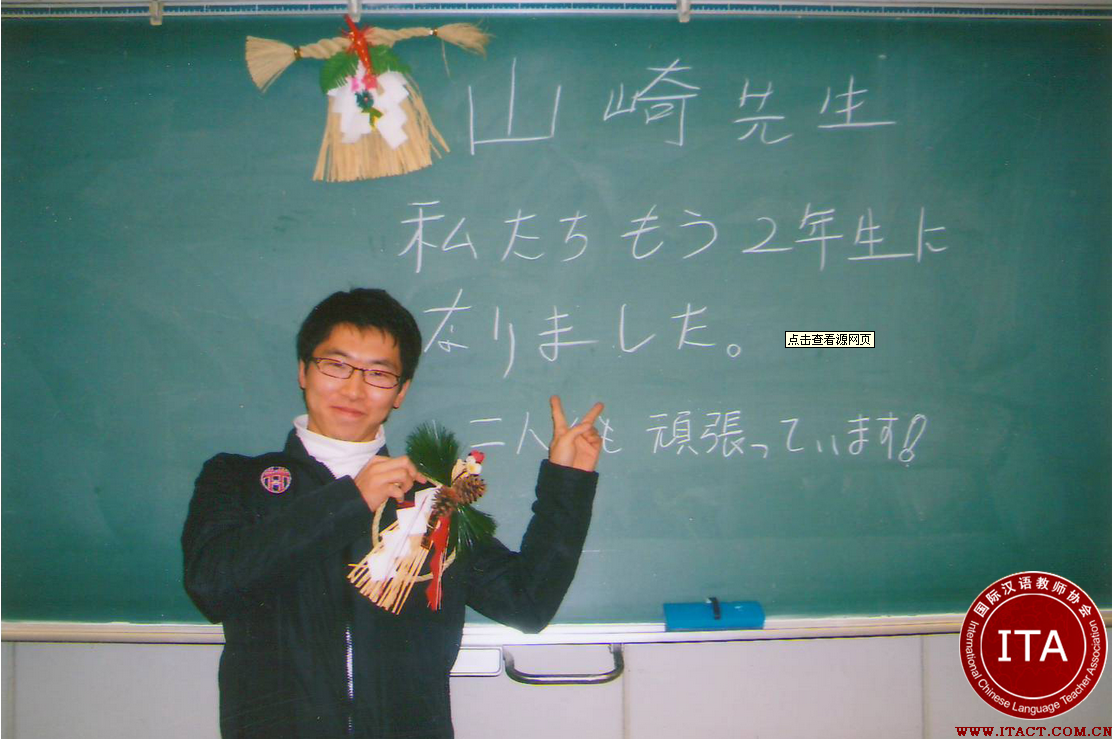 山崎先生
私たちもう2年生に
なりました。
点击查看源网页
二人も頑張っています!
国际汉语教师协会
ITA
International Chinese Language Teacher Association
www.ITACT.COM.CN